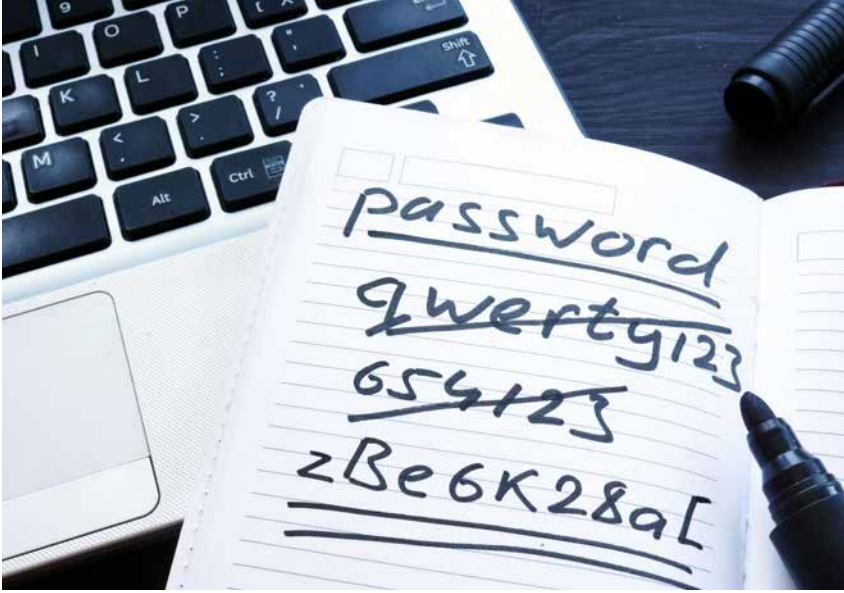 9 O P { [
I O P
K L : ; " '
M < , > . ? / Shift
Alt Ctrl
password
qwerty123
654123
zBe6K28a[